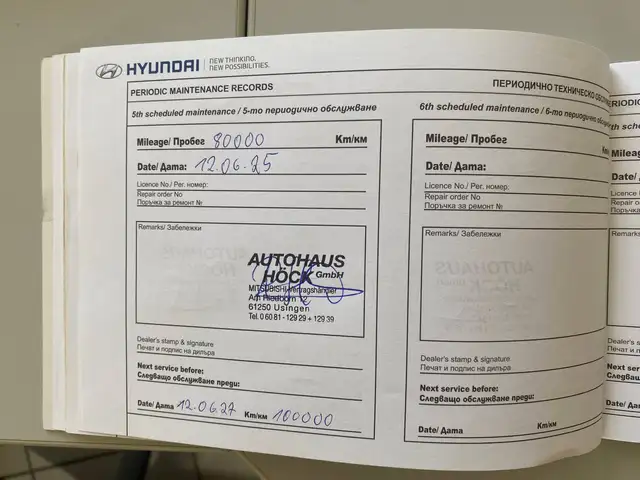 HYUNDAI | NEW THINKING.
NEW POSSIBILITIES.
PERIODIC MAINTENANCE RECORDS
ПЕРИОДИЧНО ТЕХНИЧЕСКО
5th scheduled maintenance / 5-то периодично обслужване
Mileage/ Пробег 80000 Km/км
Date/ Дата: 12.06.25
Licence No./ Рег. номер:
Repair order No
Поръчка за ремонт №
Remarks/ Забележки
AUTOHAUS
HÖCK GmbH
MITSUBISHI-Vertragshändler
Am Riedborn 12
61250 Usingen
Tel. 0 60 81 - 129 29 + 129 39
Dealer's stamp & signature
Печат и подпис на дилъра
Next service before:
Следващо обслужване преди:
Date/ Дата 12.06.27 Km/км 100000
6th scheduled maintenance / 6-то периодично
Mileage/ Пробег
Date/ Дата:
Licence No./ Рег. номер:
Repair order No
Поръчка за ремонт №
Remarks/ Забележки
Dealer's stamp & signature
Печат и подпис на дилъра
Next service before:
Следващо обслужване преди:
Date/ Дата Km/км